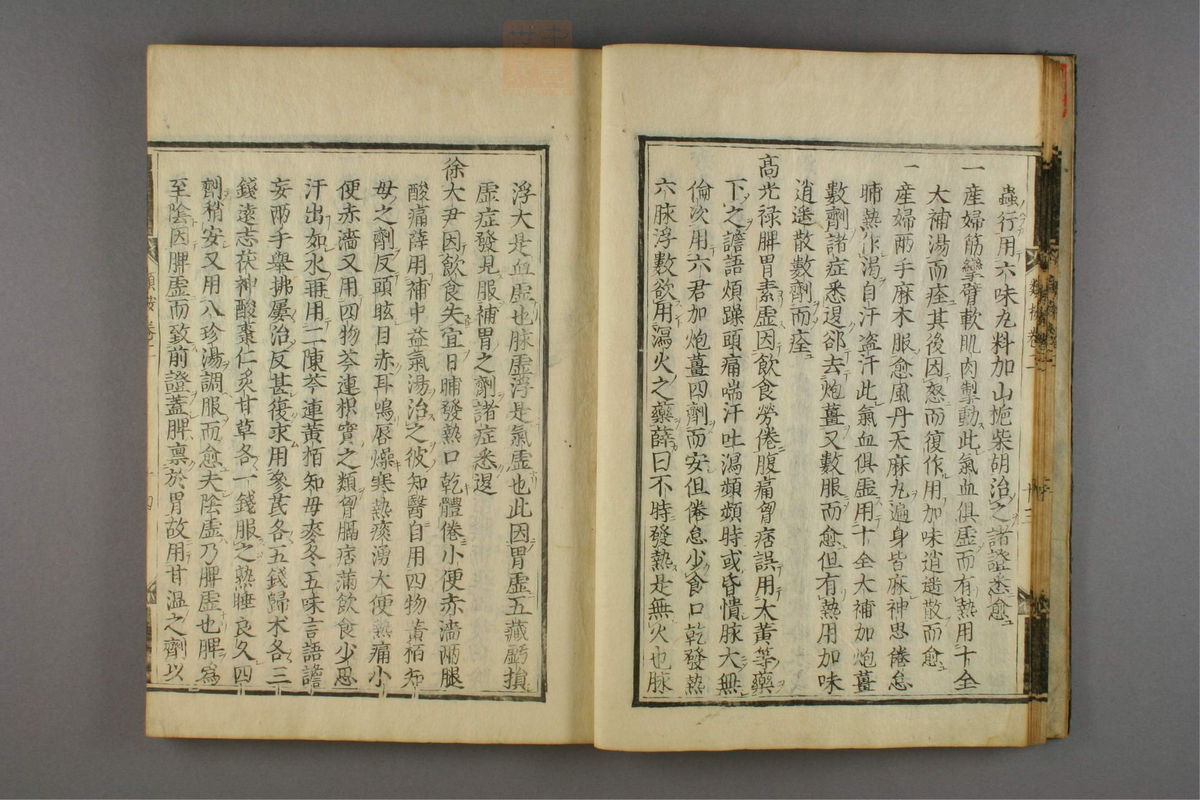 蟲行用六味丸料加山梔柴胡治之諸證悉愈
一產婦筋攣臂軟肌肉掣動此氣血俱虛而有熱用十全
大補湯而痊其後因怒而復作用加味逍遥散而愈
一產婦兩手麻木服愈風丹天麻丸遍身皆麻神思倦怠
晡熱作渴自汗盗汗此氣血俱虛用十全大補加炮薑
數劑諸症悉退郤去炮薑又數服而愈但有熱用加味
逍遥散數劑而痊
高光禄脾胃素虛因飲食勞倦腹痛胷痞誤用大黄等藥
下之譫語煩躁頭痛喘汗吐瀉頻頻時或昏憒脉大無
倫次用六君加炮薑四劑而安但倦怠少食口乾發熱
六脉浮數欲用瀉火之藥薛曰不時發熱是無火也脉
浮大是血虛也脉虛浮是氣虛也此因胃虛五藏虧損
虛症發見服補胃之劑諸症悉退
徐大尹因飲食失宜日晡發熱口乾體倦小便赤濇兩腿
酸痛薛用補中益氣湯治之彼知醫自用四物黄栢知
母之劑反頭眩目赤耳鳴唇燥寒熱痰湧大便熱痛小
便赤濇又用四物芩連枳實之類胷膈痞滿飲食少思
汗出如水再用二陳芩連黄栢知母麥冬五味言語譫
妄兩手舉拂屢治反甚復求用參芪各五錢歸术各三
錢遠志茯神酸棗仁炙甘草各一錢服之熟睡良久四
劑稍安又用八珍湯調服而愈夫陰虛乃脾虛也脾為
至陰因脾虛而致前證蓋脾禀於胃故用甘温之劑以